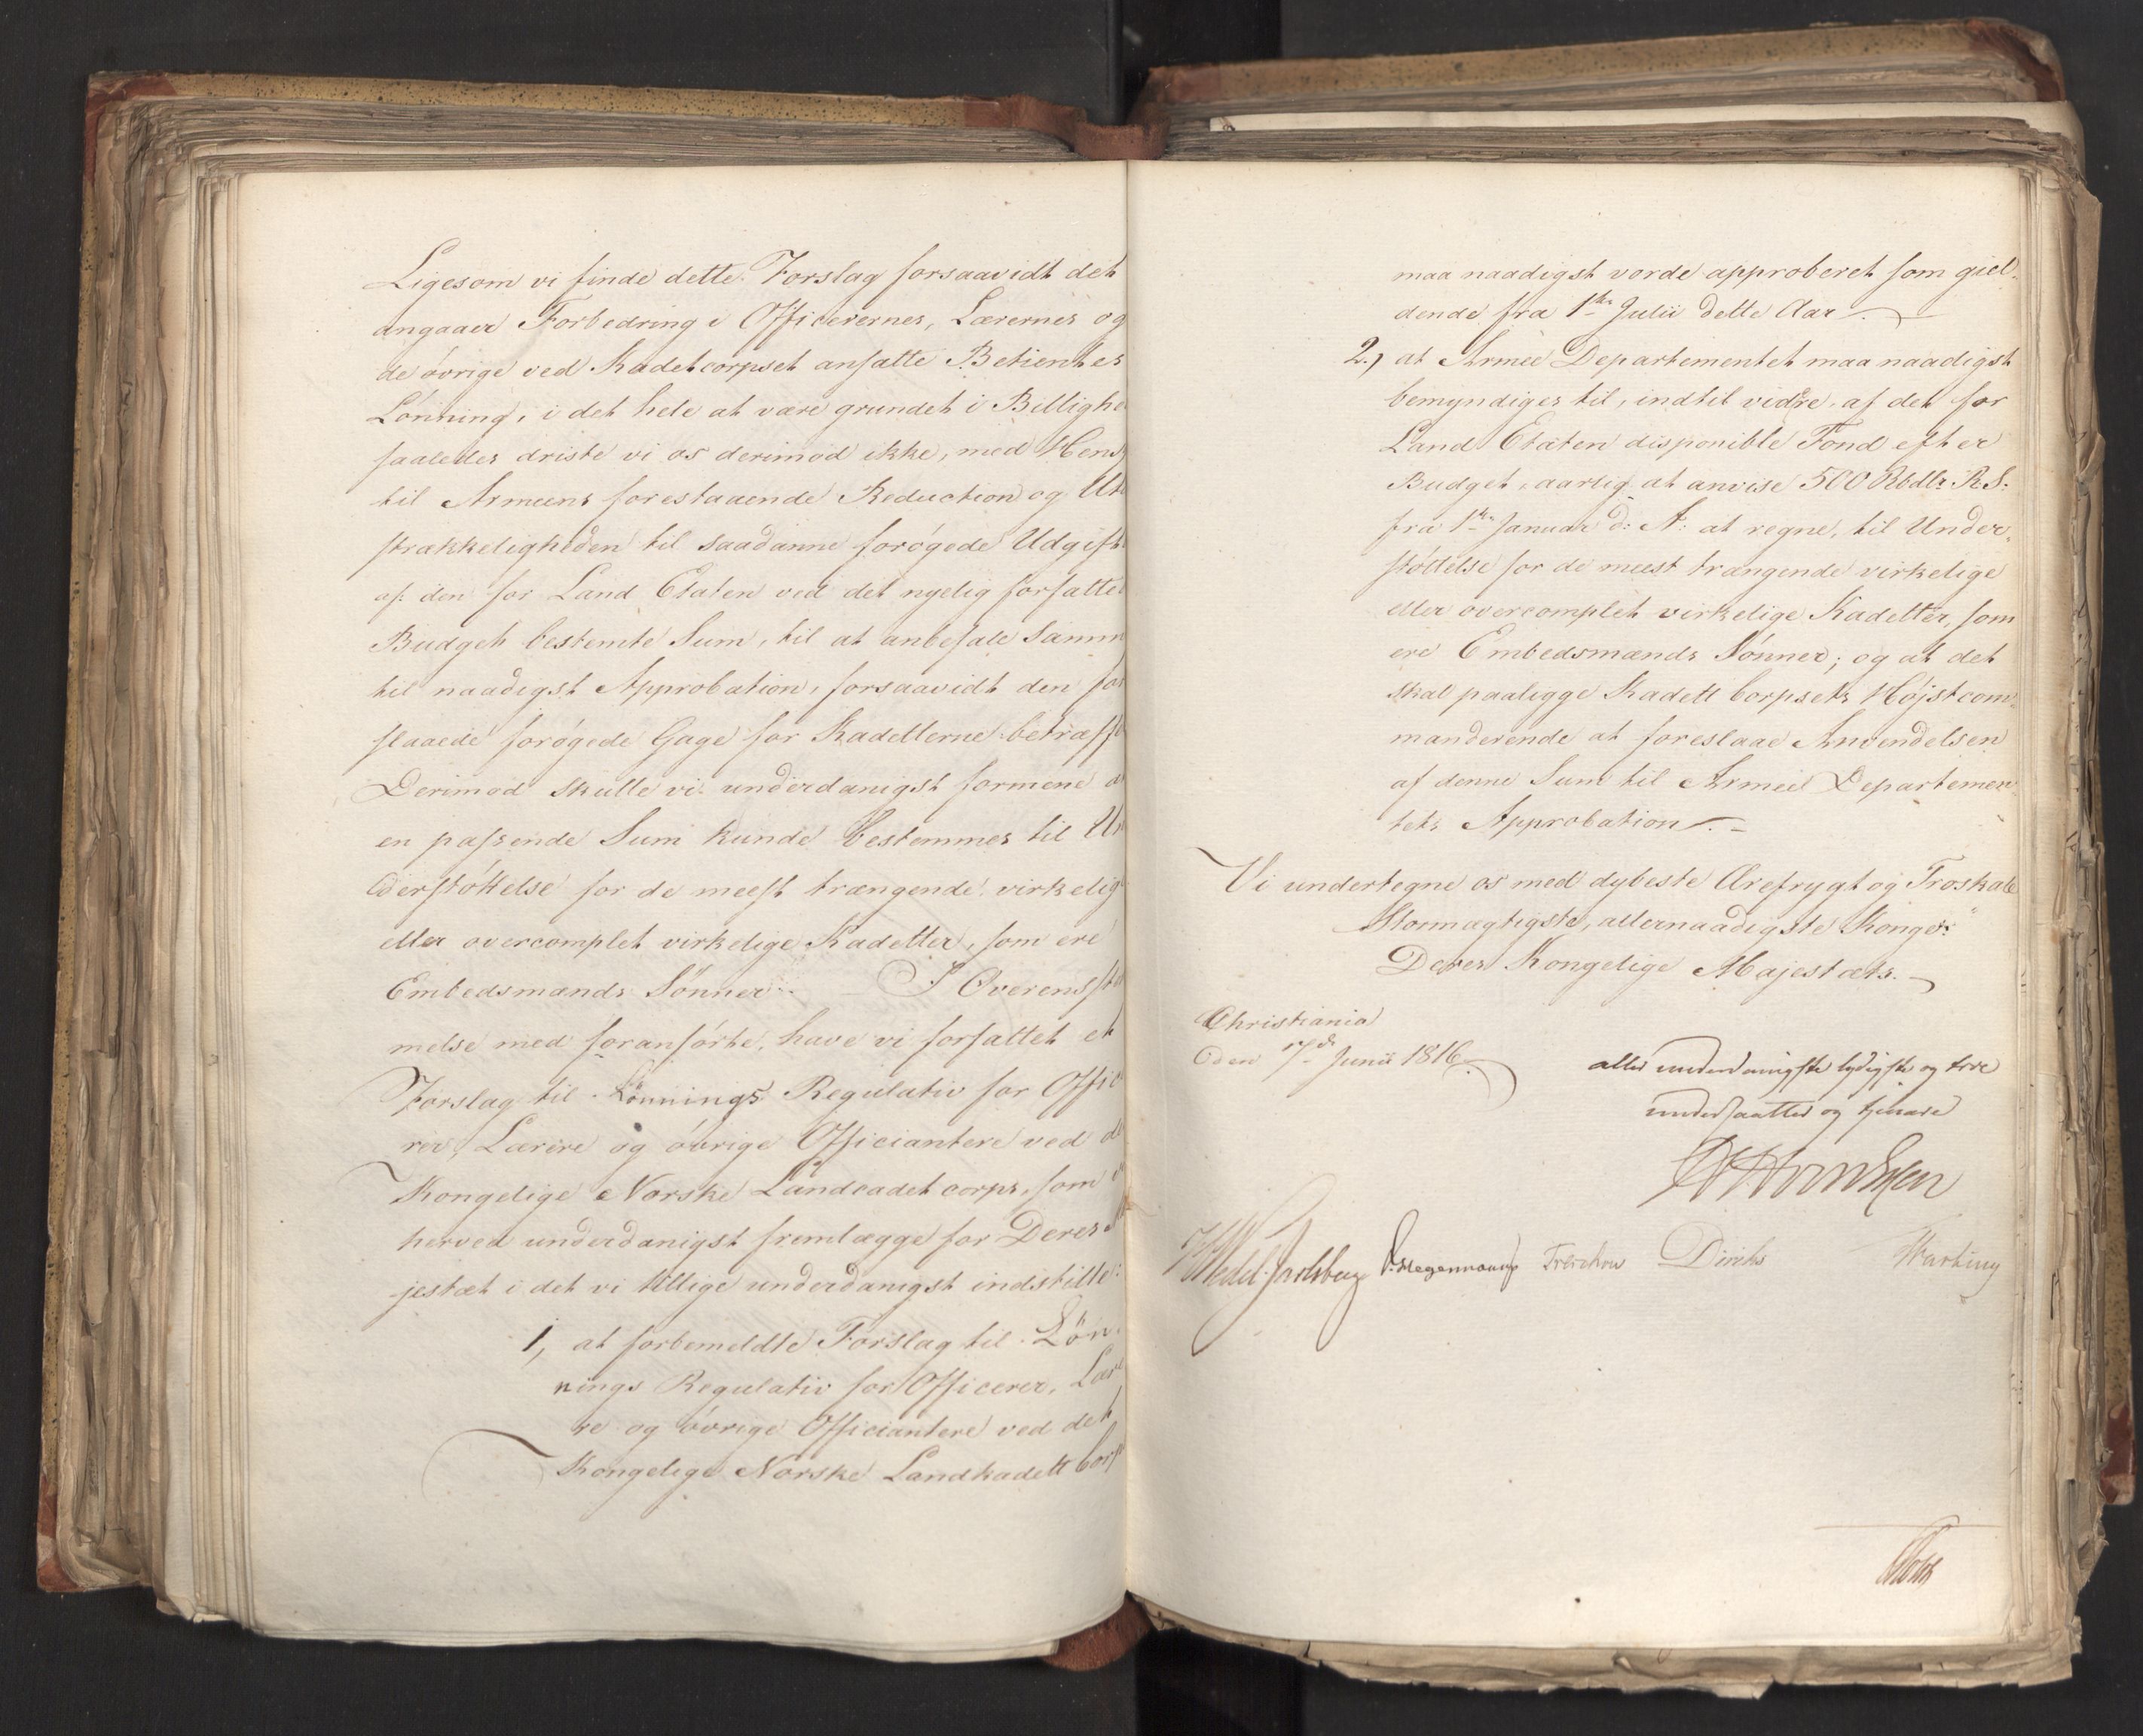 Ligesom vi finde dette Forslag forsaavidt det
angaaer Forbedring i Officerernes, Lærernes og
de övrige ved Kadetcorpset ansatte Betientes
Lönning, i det hele at være grundet i Billighe
saaledes driste vi os derimod ikke, med Hens
til Armeens forestaaende Reduction og Ut
strækkeligheden til saadanne forögede Udgift
af den for Land Etaten ved det nyelig forfatte
Budget bestemte Sum, til at anbefale samm
til naadigst Approbation, forsaavidt den for
slaaede forögede Gage for Kadetterne betræffe
Derimod skulle vi underdanigst formene a
en passende Sum kunde bestemmes til Un
derstöttelse for de meest trængende virkelig
eller overcomplet virkelige Kadetter, som ere
Embedsmænds Sönner. I Overensste
melse med foranförte, have vi forfattet et
Forslag til Lönnings Regulativ for Offic
rer, Lærere og övrige Officiantere ved de
Kongelige Norske Landcadet corps, som v
herved underdanigst fremlægge for Deres M
jestæt i det vi tillige underdanigst indstille:
1, at forbemeldte Forslag til Lön
nings Regulativ for Officerer, Lære
re og övrige Officiantere ved det
Kongelige Norske Landkadett Corps
maa naadigst vorde approberet som giel-
dende fra 1ste Julii dette Aar.
2.) at Armee Departementet maa naadigst
bemyndiges til, indtil vidre, af det for
Land Etaten disponible Fond efter
Budget, aarlig at anvise 500 Rbdlr R.S.
fra 1ste Januar d: A: at regne, til Under-
stöttelse for de meest trængende virkelige
eller overcomplet virkelige Kadetter, som
ere Embedsmænds Sönner; og at det
skal paaligge Kadett Corpsets Höjstcom-
manderende at foreslaae Anvendelsen
af denne Sum til Armee Departemen-
tets Approbation.
Vi undertegne os med dybeste Ærefrygt og Troskab
Stormægtigste, allernaadigste Konge!
Deres Kongelige Majestæts.
Christiania
den 17de Junii 1816.
allerunderdanigste lydigste og troe
undersaatter og tjenere
Wedel Jarlsberg Hegermann Treschow Diriks